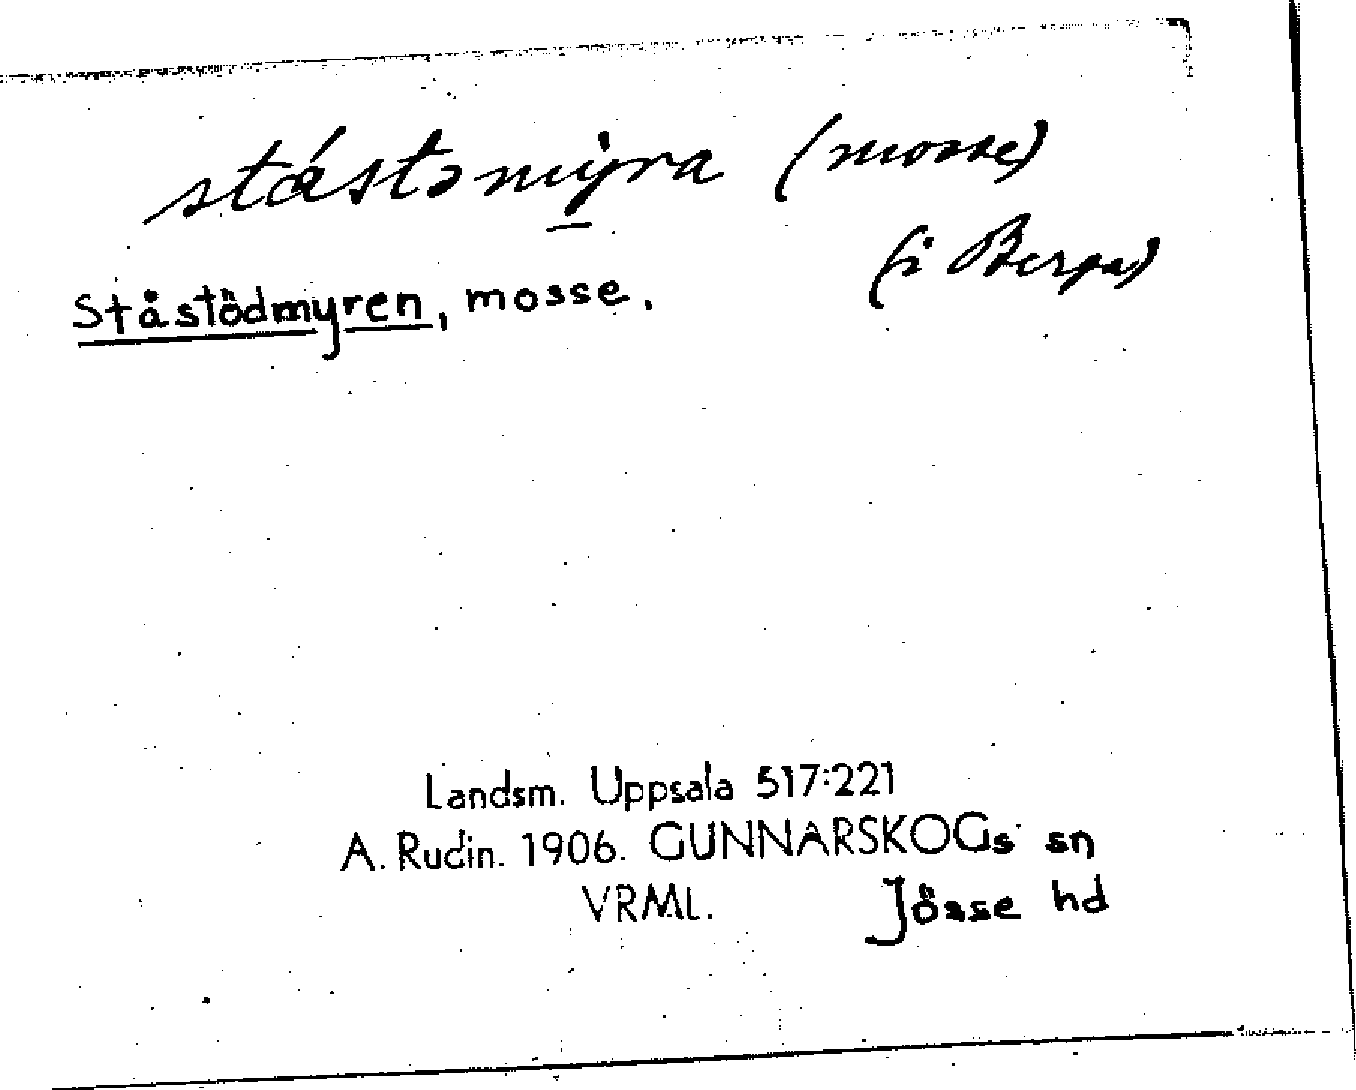 ståstomyra (mosse)
(i Berga)
Ståstödmyren, mosse.
Landsm. Uppsala 517:221
A. Rudin. 1906. GUNNARSKOGs sn
VRML. Jösse hd